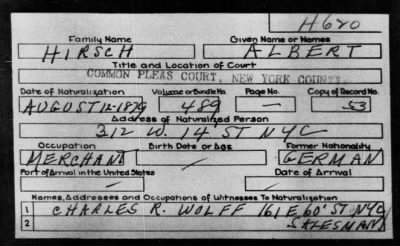 H620
Family Name Given Name or Names
HIRSCH ALBERT
Title and Location of Court
COMMON PLEAS COURT, NEW YORK COUNTY.
Date of Naturalization Volume or Bundle No. Page No. Copy of Record No.
AUGUST 12-1879 489 — 53
Address of Naturalized Person
312 W. 14 ST NYC
Occupation Birth Date or Age Former Nationality
MERCHANT — GERMAN
Port of Arrival in the United States Date of Arrival
— —
Names, Addresses and Occupations of Witnesses To Naturalization
1 CHARLES R. WOLFF 161 E. 60' ST NYC
2 SALESMAN